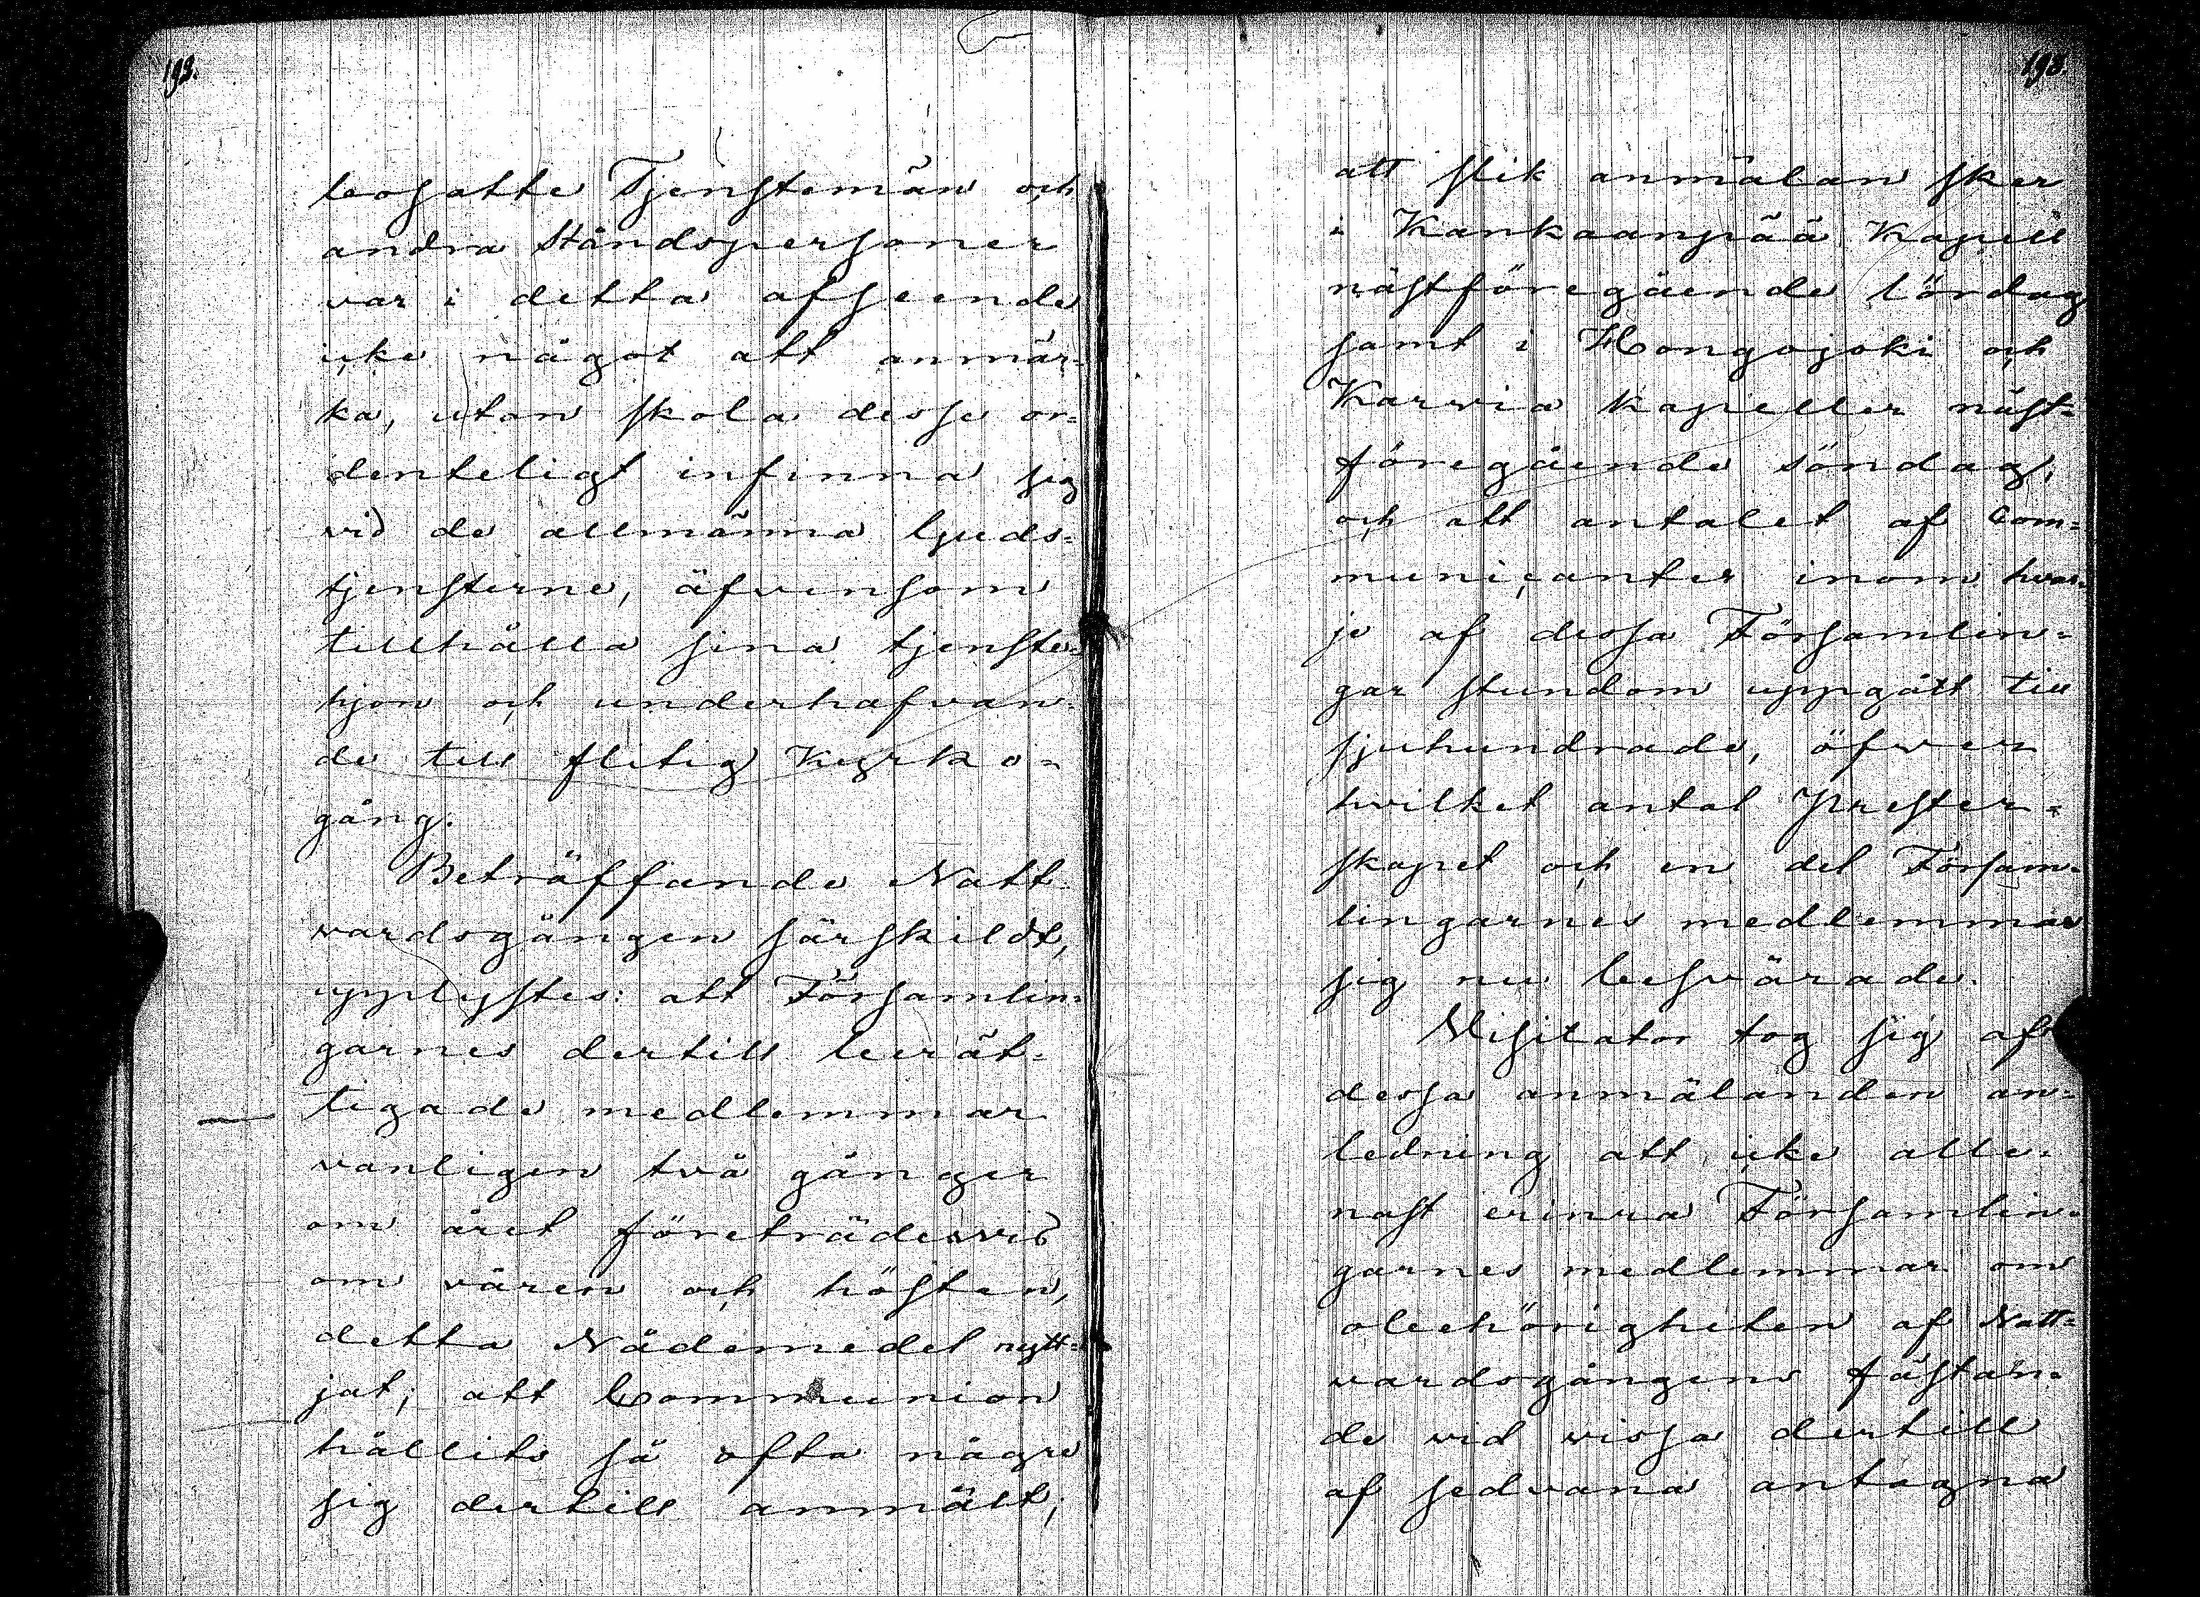 192.
bosatte Tjenstemän och
andra Ståndspersoner
var i detta afseende
icke något att anmär-
ka, utan skola desse or=
denteligt infinna sig
vid de allmänna Guds=
tjensterne, äfvensom
tillhålla sina tjenste=
hjon och underhafvan-
de till flitig Kyrko=
gång.
Beträffande Natt-
vardsgången särskildt,
upplystes: att Församlin-
garnes dertill berät=
tigade medlemmar
vanligen två gånger
om året företrädesvis
om våren och hösten,
detta Nådemedel nytt=
jat; att Communion
hållits så ofta någre
sig dertill anmält;
193.
att slik anmälan sker
i Kankaanpää Kapell
nästföregående lördag
samt i Hongojoki och
Karvia Kapeller näst=
föregående söndag,
och att antalet af Com=
municanter inom hvar=
je af dessa Församlin=
gar stundom uppgått till
sjuhundrade, öfver
hvilket antal Prester=
skapet och en del Försam-
lingarnes medlemmar
sig nu besvärade.
Visitator tog sig af
dessa anmälanden an=
ledning att icke alle-
nast erinra Församlin-
garnes medlemmar om
olechörigheten af Natt=
vardsgångens fästan=
de vid vissa dertill
af sedvana antagna